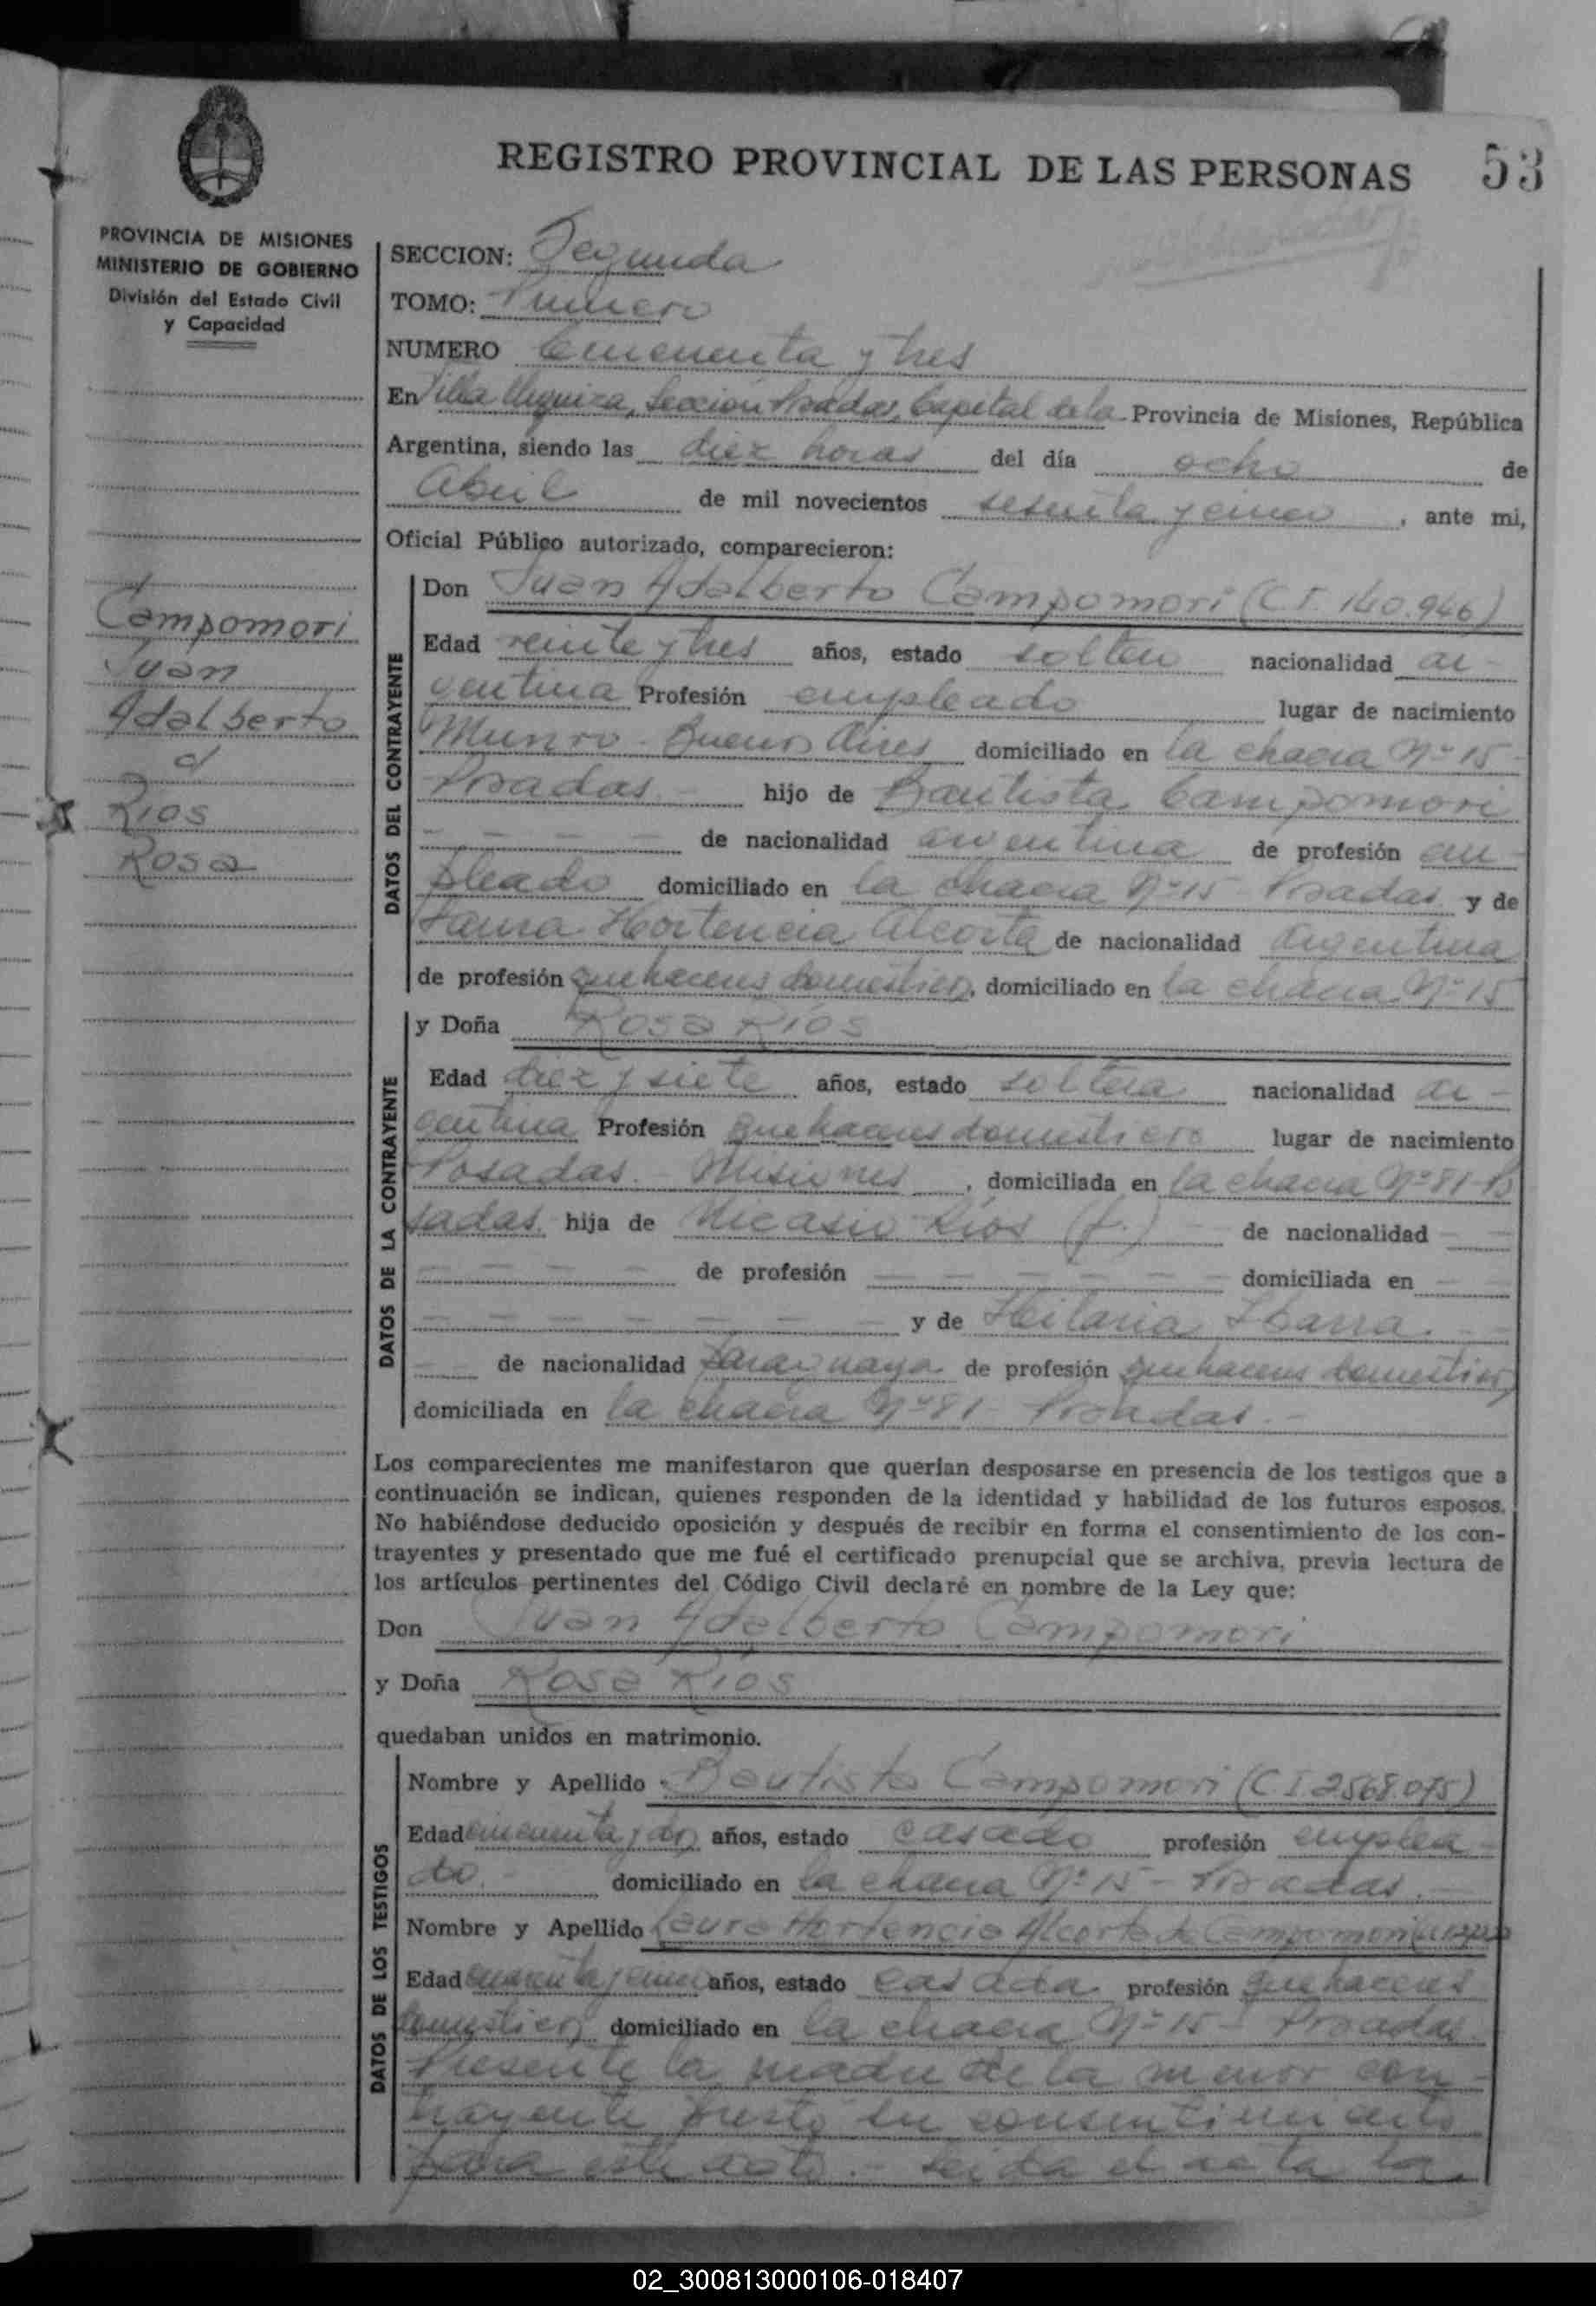 REGISTRO PROVINCIAL DE LAS PERSONAS 53
PROVINCIA DE MISIONES
MINISTERIO DE GOBIERNO
División del Estado Civil
y Capacidad
Campomori
Juan
Adalberto
c/
Rios
Rosa
SECCION: Segunda
TOMO: Primero
NUMERO Cincuenta y tres
En Villa Urquiza, Sección Posadas, Capital de la Provincia de Misiones, República
Argentina, siendo las diez horas del día ocho de
abril de mil novecientos sesenta y cinco, ante mi,
Oficial Público autorizado, comparecieron:
DATOS DEL CONTRAYENTE
Don Juan Adalberto Campomori (C.I. 140.946)
Edad veinte y tres años, estado soltero nacionalidad ar-
gentina Profesión empleado lugar de nacimiento
Munro - Buenos Aires domiciliado en la chacra Nº 15 -
Posadas. - hijo de Bautista Campomori
- - - - de nacionalidad argentina de profesión em-
pleado domiciliado en la chacra Nº 15 - Posadas y de
Laura Hortencia Alcorta de nacionalidad Argentina
de profesión quehaceres domésticos, domiciliado en la chacra Nº 15
DATOS DE LA CONTRAYENTE
y Doña Rosa Rios
Edad diez y siete años, estado soltera nacionalidad ar-
gentina Profesión quehaceres domésticos lugar de nacimiento
Posadas. Misiones, domiciliada en la chacra Nº 81 - Po
sadas. hija de Nicasio Rios (f.) - de nacionalidad - -
- - - - de profesión - - - - - - domiciliada en - -
- - - - - - - y de Hilaria Ibarra. - -
- - de nacionalidad paraguaya de profesión quehaceres domésticos,
domiciliada en la chacra Nº 81 - Posadas. -
Los comparecientes me manifestaron que querían desposarse en presencia de los testigos que a
continuación se indican, quienes responden de la identidad y habilidad de los futuros esposos.
No habiéndose deducido oposición y después de recibir en forma el consentimiento de los con-
trayentes y presentado que me fué el certificado prenupcial que se archiva, previa lectura de
los artículos pertinentes del Código Civil declaré en nombre de la Ley que:
Don Juan Adalberto Campomori
y Doña Rosa Rios
quedaban unidos en matrimonio.
DATOS DE LOS TESTIGOS
Nombre y Apellido Bautista Campomori (C.I. 2568.075)
Edad cincuenta y dos años, estado casado profesión emplea-
do. - domiciliado en la chacra Nº 15 - Posadas. -
Nombre y Apellido Laura Hortencia Alcorta de Campomori
Edad cuarenta y cinco años, estado casada profesión quehaceres
domésticos domiciliado en la chacra Nº 15 - Posadas.
Presente la madre de la menor con-
trayente prestó su consentimiento
para este acto. - Leida el acta la
02_300813000106-018407